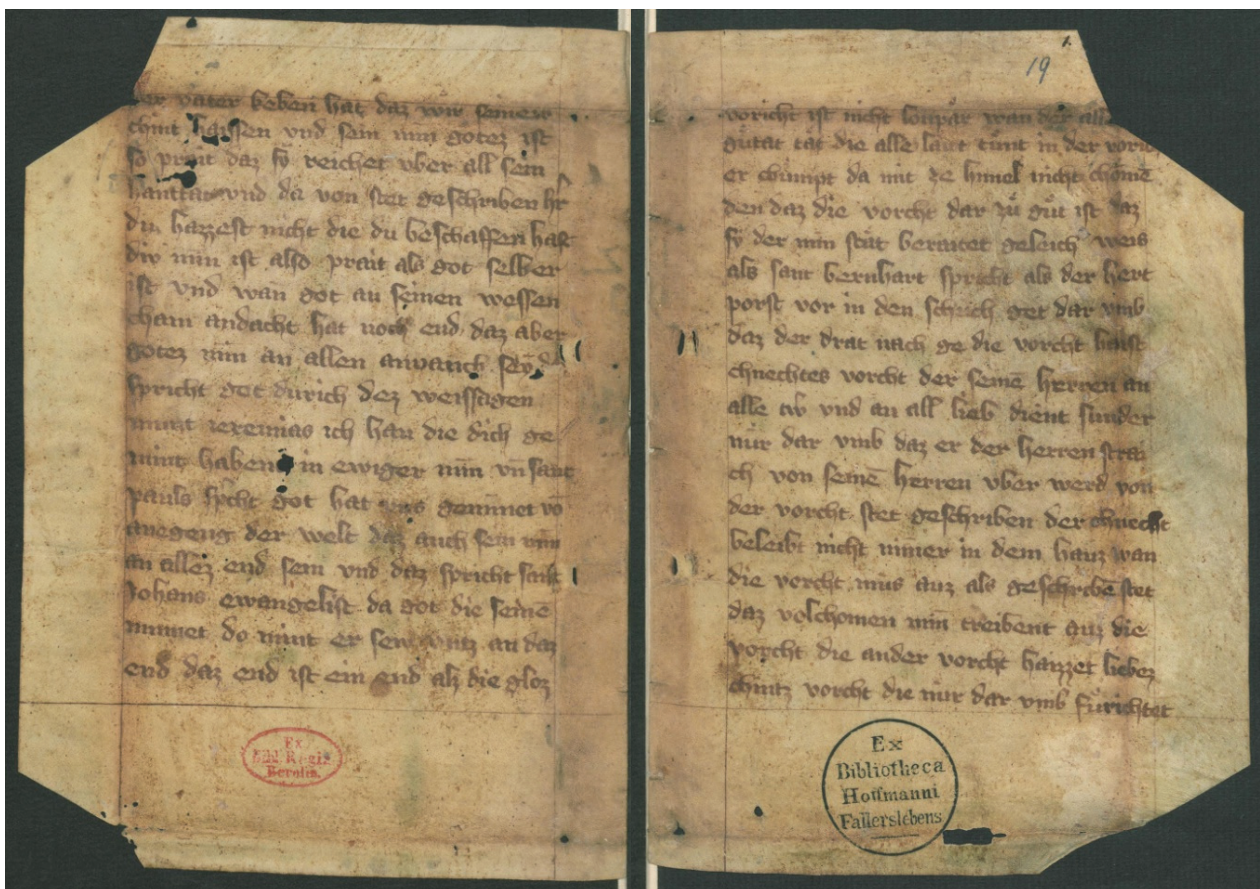 der vater keben hat daz wir seinew
chint haissen vnd sein minn gotez ist
so prait daz sy reichet vber all sein
hantat vnd da von stet geschriben hr̄
du hazzest nicht die du beschaffen hast
div minn ist also prait als got selber
ist vnd wan got an seinen wessen
end daz aber
gotez minn an allen
spricht got durich dez weissagen
munt ieremias ich han die dich ge
mint haben in ewiger minn vn̄ sant
pauls spͥcht got hat vns geminnet vō
anegeng der welt daz auch sein minn
an allez end sein vnd daz spricht sant
Johans ewangelist da got die seinē
minnet do mint er sew vntz an daz
end daz end ist ein end als die gloz
Ex
Bibl. Regia
Berolin.
19
voricht ist nicht lonpär wan der alle
gütät tät die alle läut tünt in der vorich
er chümpt da mit ze himel nicht chömē
den daz die vorcht dar zü güt ist daz
sy der minn stat beraitet geleich weis
als sant bernhart spricht als der hert
porst vor in den schuch get dar vmb
daz der drat nach ge die vorcht haist
chnechtes vorcht der seinē herren an
alle tw vnd an all lieb dient sunder
nür dar vmb daz er der herren strai
ch von seinē herren vber werd von
der vorcht stet geschriben der chnecht
beleibt nicht nimer in dem hauz wan
die vorcht mus auz als geschribē stet
daz volchomen minn treibent auz die
vorcht die ander vorcht hazzet liebez
chintz vorcht die nür dar vmb fürichtet
Ex
Bibliotheca
Hoffmanni
Fallerslebens